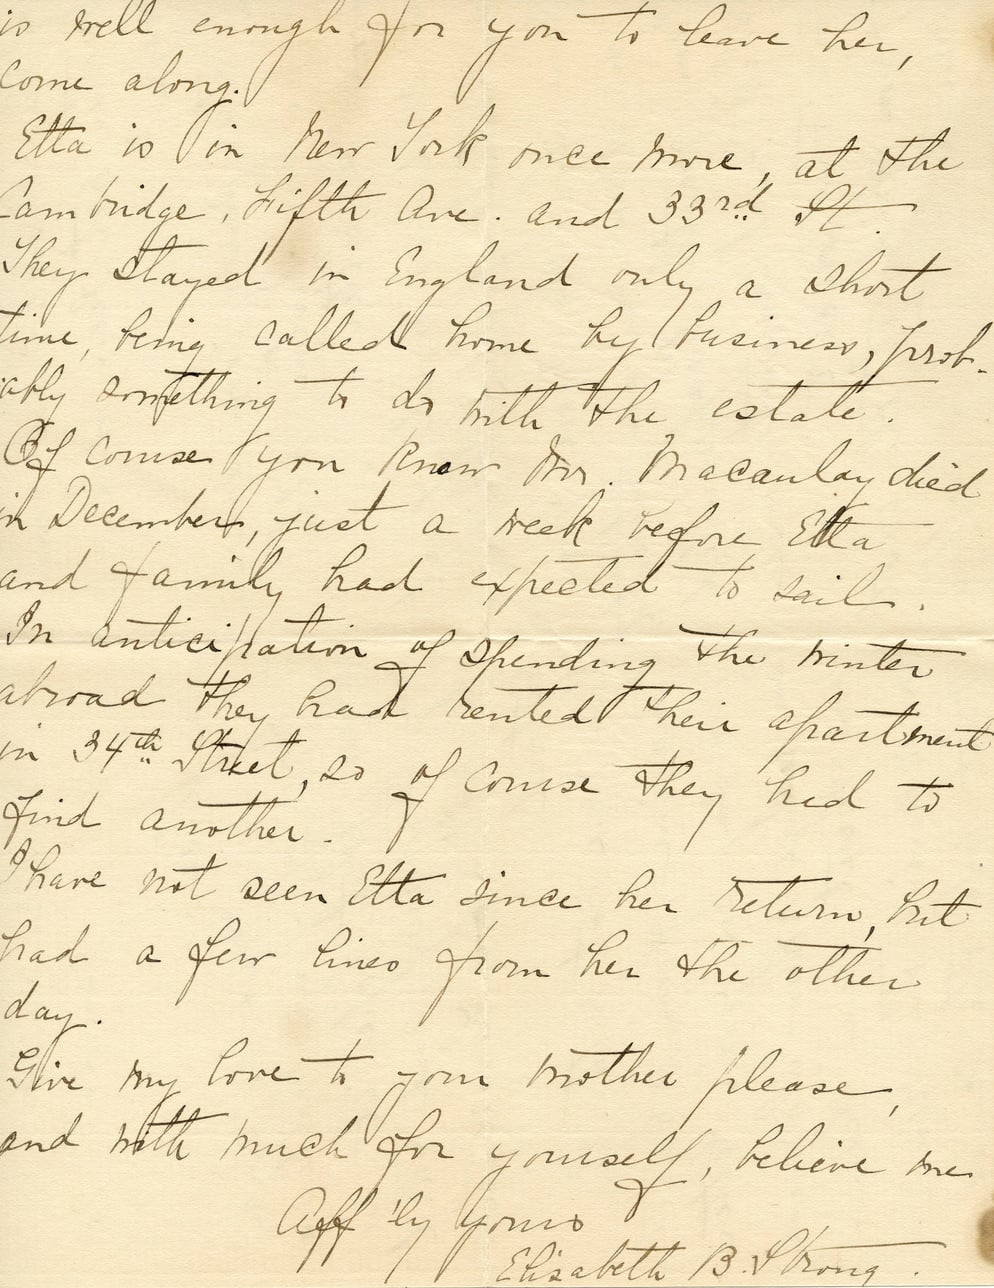 is well enough for you to leave her,
come along.
Etta is in New York once more, at the
Cambridge, Fifth Ave. and 33rd St.
They stayed in England only a short
time, being called home by business, prob-
ably something to do with the estate.
Of course you know Mr. Macaulay died
in December, just a week before Etta
and family had expected to sail.
In anticipation of spending the winter
abroad they had rented their apartment
in 34th Street, so of course they had to
find another.
I have not seen Etta since her return, but
had a few lines from her the other
day.
Give my love to your mother please,
and with much for yourself, believe me
Aff'ly yours
Elisabeth B. Strong.